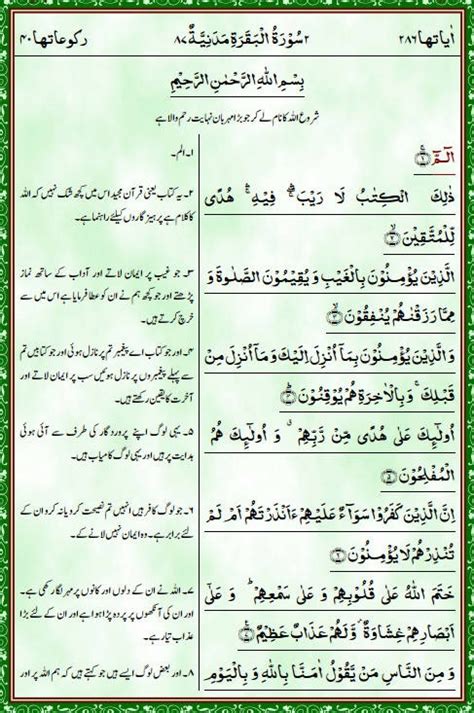 اٰیاتھا ۲۸۶ ۲ سُوْرَۃُ الْبَقَرَۃِ مَدَنِیَّۃٌ ۸۷ رکوعاتھا ۴۰
بِسْمِ اللّٰہِ الرَّحْمٰنِ الرَّحِیْمِ
شروع اللہ کا نام لے کر جو بڑا مہربان نہایت رحم والا ہے
الٓـمّٓ ۚ﴿۱﴾
ذٰلِکَ الْکِتٰبُ لَا رَیْبَ ۚۖ فِیْہِ ۚۛ ہُدًی
لِّلْمُتَّقِیْنَ ۙ﴿۲﴾
الَّذِیْنَ یُؤْمِنُوْنَ بِالْغَیْبِ وَ یُقِیْمُوْنَ الصَّلٰوۃَ وَ
مِمَّا رَزَقْنٰہُمْ یُنْفِقُوْنَ ۙ﴿۳﴾
وَ الَّذِیْنَ یُؤْمِنُوْنَ بِمَاۤ اُنْزِلَ اِلَیْکَ وَ مَاۤ اُنْزِلَ مِنْ
قَبْلِکَ ۚ وَ بِالْاٰخِرَۃِ ہُمْ یُوْقِنُوْنَ ؕ﴿۴﴾
اُولٰٓئِکَ عَلٰی ہُدًی مِّنْ رَّبِّہِمْ ٭ وَ اُولٰٓئِکَ ہُمُ
الْمُفْلِحُوْنَ ﴿۵﴾
اِنَّ الَّذِیْنَ کَفَرُوْا سَوَآءٌ عَلَیْہِمْ ءَاَنْذَرْتَہُمْ اَمْ لَمْ
تُنْذِرْہُمْ لَا یُؤْمِنُوْنَ ﴿۶﴾
خَتَمَ اللّٰہُ عَلٰی قُلُوْبِہِمْ وَ عَلٰی سَمْعِہِمْ ؕ وَ عَلٰۤی
اَبْصَارِہِمْ غِشَاوَۃٌ ۫ وَّ لَہُمْ عَذَابٌ عَظِیْمٌ ﴿۷﴾
وَ مِنَ النَّاسِ مَنْ یَّقُوْلُ اٰمَنَّا بِاللّٰہِ وَ بِالْیَوْمِ
۱۔ الم۔
۲۔ یہ کتاب یعنی قرآن مجید اس میں کچھ شک نہیں کہ اللہ
کا کلام ہے پرہیز گاروں کیلئے راہنما ہے۔
۳۔ جو غیب پر ایمان لاتے اور آداب کے ساتھ نماز
پڑھتے اور جو کچھ ہم نے ان کو عطا فرمایا ہے اس میں سے
خرچ کرتے ہیں۔
۴۔ اور جو کتاب اے پیغمبر تم پر نازل ہوئی اور جو کتابیں تم
سے پہلے پیغمبروں پر نازل ہوئیں سب پر ایمان لاتے اور
آخرت کا یقین رکھتے ہیں۔
۵۔ یہی لوگ اپنے پروردگار کی طرف سے آئی ہوئی
ہدایت پر ہیں اور یہی لوگ کامیاب ہیں۔
۶۔ جو لوگ کافر ہیں انہیں تم نصیحت کرو یا نہ کرو ان کے
لئے برابر ہے۔ وہ ایمان نہیں لانے کے۔
۷۔ اللہ نے ان کے دلوں اور کانوں پر مہر لگا رکھی ہے۔
اور ان کی آنکھوں پر پردہ پڑا ہوا ہے اور ان کے لئے بڑا
عذاب تیار ہے۔
۸۔ اور بعض لوگ ایسے ہیں جو کہتے ہیں کہ ہم اللہ پر اور